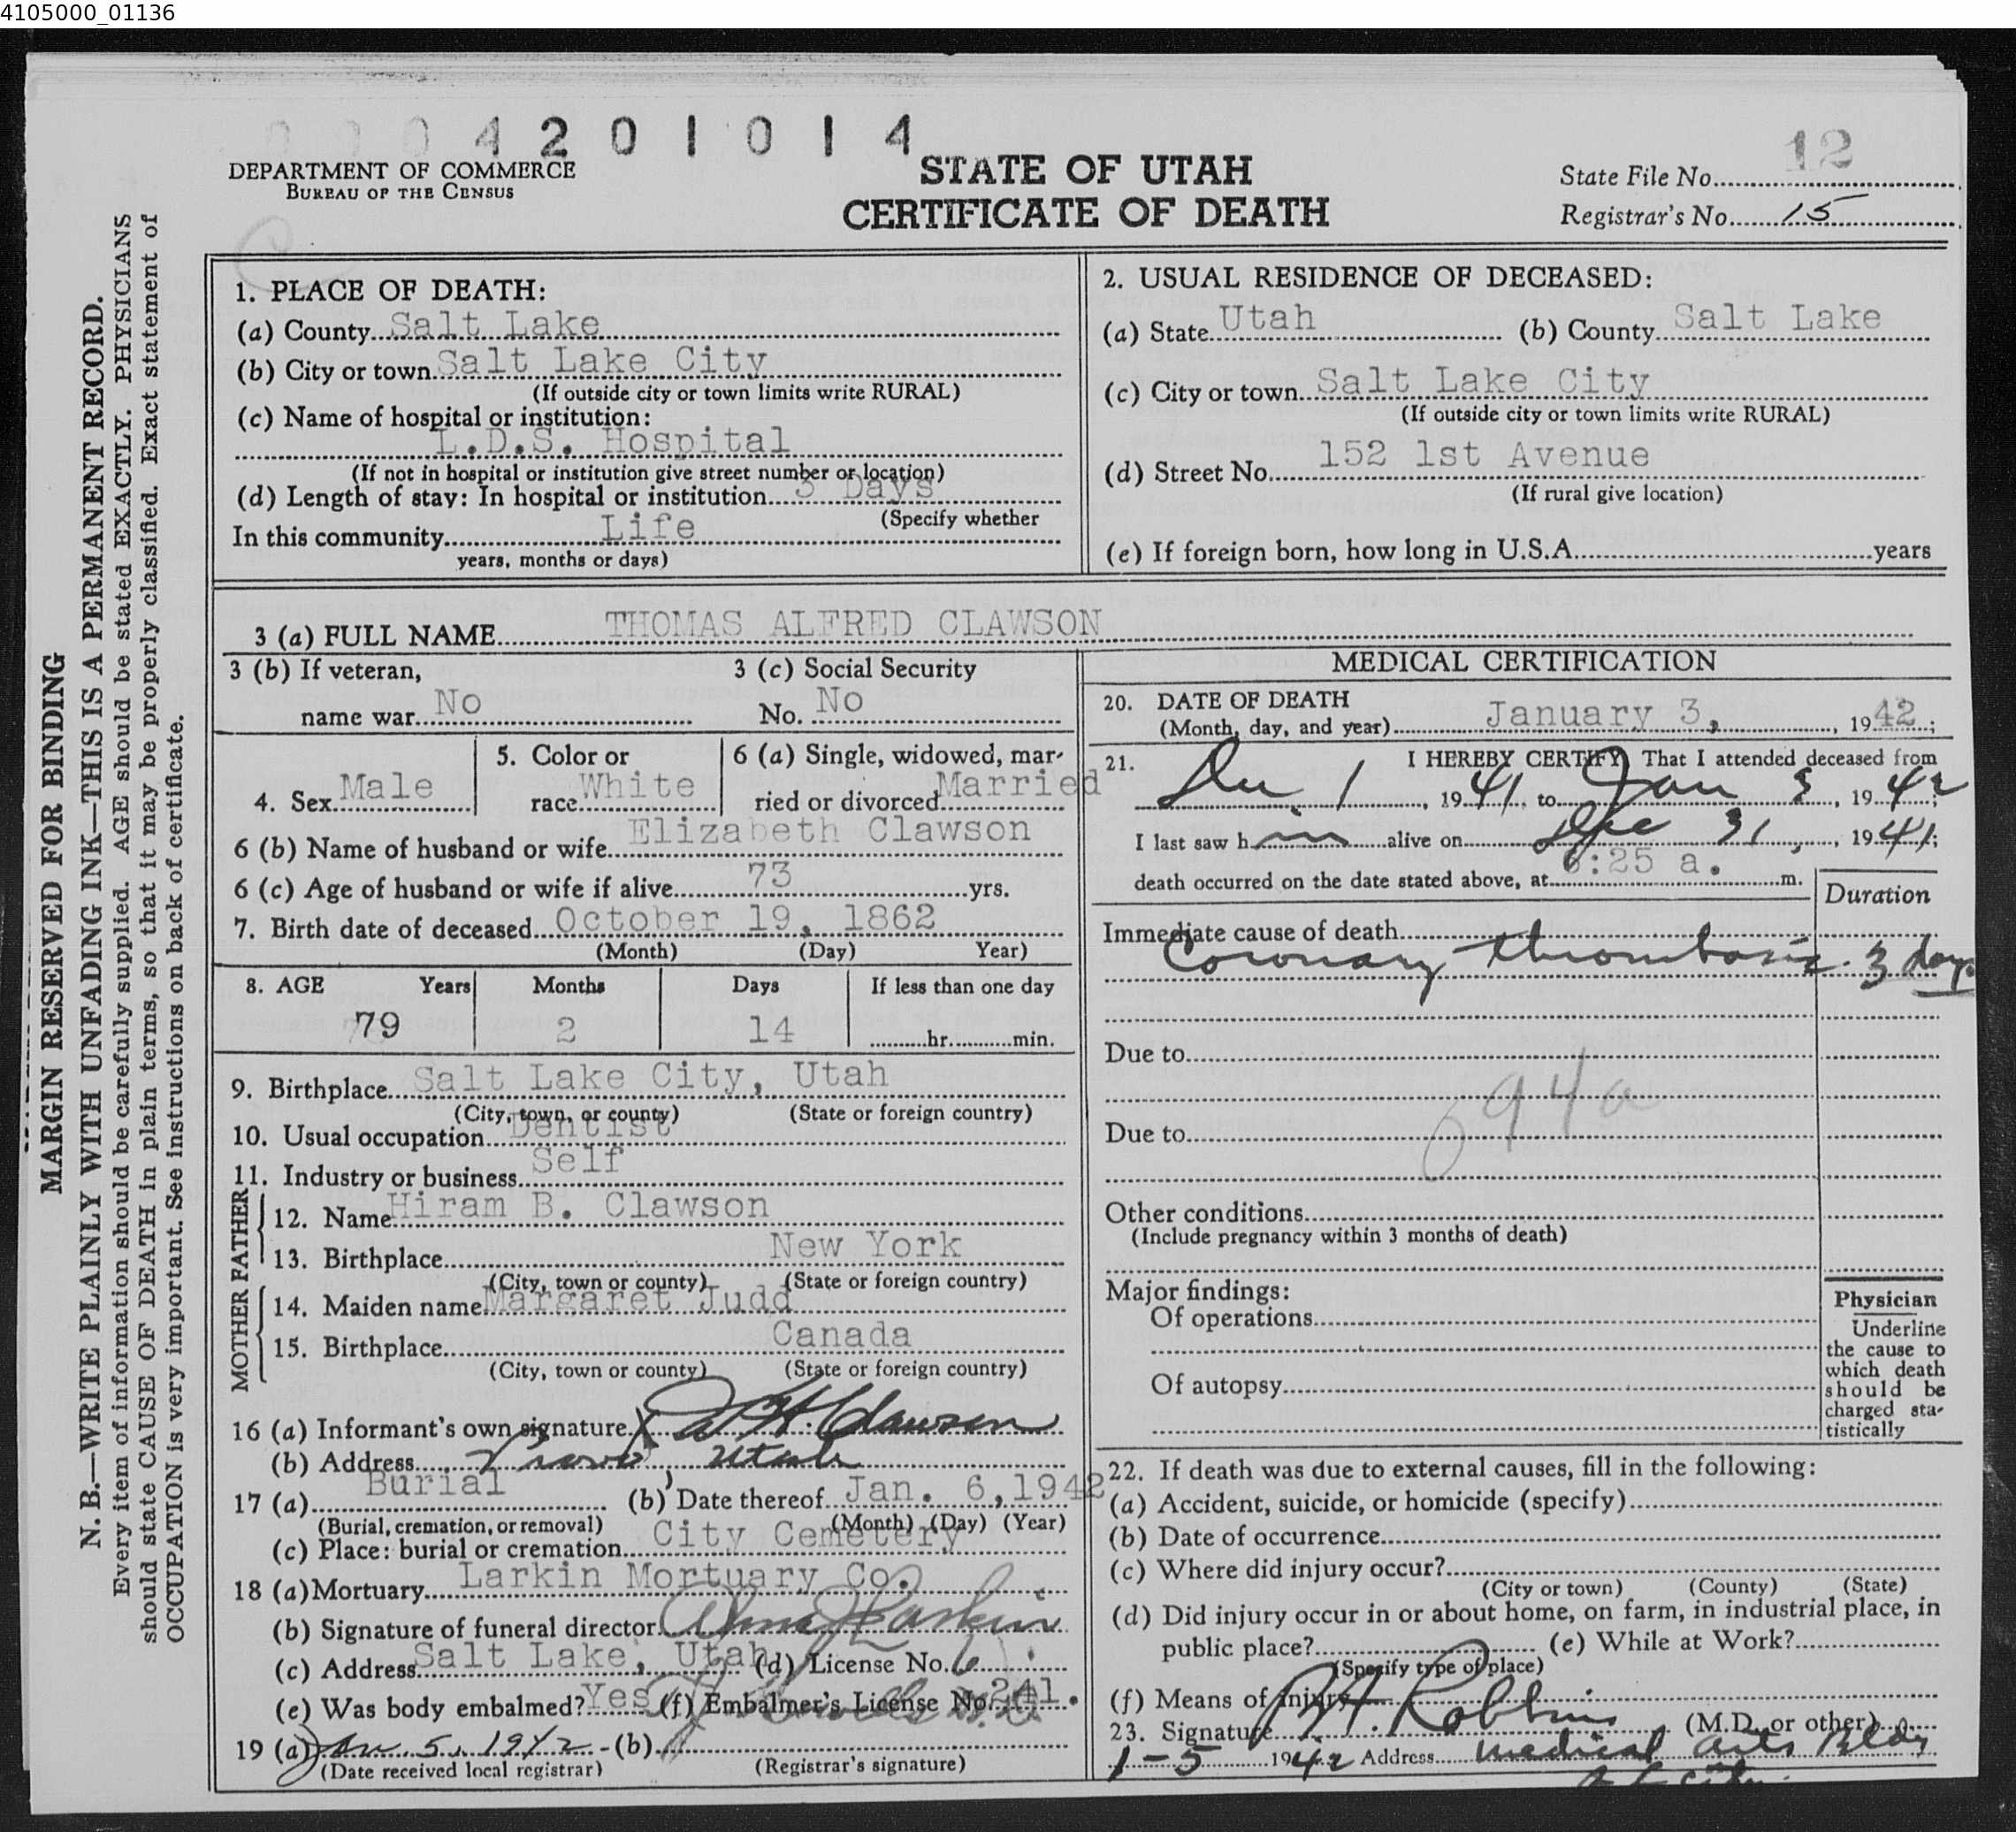 4105000_01136
0004201014
DEPARTMENT OF COMMERCE
BUREAU OF THE CENSUS
STATE OF UTAH
CERTIFICATE OF DEATH
State File No. 12
Registrar's No. 15
MARGIN RESERVED FOR BINDING
N. B.—WRITE PLAINLY WITH UNFADING INK—THIS IS A PERMANENT RECORD.
Every item of information should be carefully supplied. AGE should be stated EXACTLY. PHYSICIANS
should state CAUSE OF DEATH in plain terms, so that it may be properly classified. Exact statement of
OCCUPATION is very important. See instructions on back of certificate.
1. PLACE OF DEATH:
(a) County Salt Lake
(b) City or town Salt Lake City
(If outside city or town limits write RURAL)
(c) Name of hospital or institution:
L.D.S. Hospital
(If not in hospital or institution give street number or location)
(d) Length of stay: In hospital or institution 3 Days
(Specify whether
In this community Life
years, months or days)
2. USUAL RESIDENCE OF DECEASED:
(a) State Utah (b) County Salt Lake
(c) City or town Salt Lake City
(If outside city or town limits write RURAL)
(d) Street No. 152 1st Avenue
(If rural give location)
(e) If foreign born, how long in U.S.A. years
3 (a) FULL NAME THOMAS ALFRED CLAWSON
3 (b) If veteran,
name war No
3 (c) Social Security
No. No
4. Sex Male
5. Color or
race White
6 (a) Single, widowed, mar-
ried or divorced Married
6 (b) Name of husband or wife Elizabeth Clawson
6 (c) Age of husband or wife if alive 73 yrs.
7. Birth date of deceased October 19, 1862
(Month) (Day) Year)
8. AGE Years Months Days If less than one day
79 2 14 hr. min.
9. Birthplace Salt Lake City, Utah
(City, town, or county) (State or foreign country)
10. Usual occupation Dentist
11. Industry or business Self
FATHER
12. Name Hiram B. Clawson
13. Birthplace New York
(City, town or county) (State or foreign country)
MOTHER
14. Maiden name Margaret Judd
15. Birthplace Canada
(City, town or county) (State or foreign country)
16 (a) Informant's own signature H. Clawson
(b) Address Provo, Utah
17 (a) Burial (b) Date thereof Jan. 6, 1942
(Burial, cremation, or removal) (Month) (Day) (Year)
(c) Place: burial or cremation City Cemetery
18 (a) Mortuary Larkin Mortuary Co.
(b) Signature of funeral director Larkin
(c) Address Salt Lake, Utah (d) License No. 6
(e) Was body embalmed? Yes (f) Embalmer's License No. 241.
19 (a) Jan. 5, 1942 - (b)
(Date received local registrar) (Registrar's signature)
MEDICAL CERTIFICATION
20. DATE OF DEATH
(Month, day, and year) January 3, , 1942;
21. I HEREBY CERTIFY, That I attended deceased from
Dec 1, 1941, to Jan 3, 1942;
I last saw him alive on Dec 31, , 1941;
death occurred on the date stated above, at 6:25 a. m.
Duration
Immediate cause of death
Coronary thrombosis. 3 days
Due to
94a
Due to
Other conditions
(Include pregnancy within 3 months of death)
Major findings:
Of operations
Of autopsy
Physician
Underline
the cause to
which death
should be
charged sta-
tistically
22. If death was due to external causes, fill in the following:
(a) Accident, suicide, or homicide (specify)
(b) Date of occurrence
(c) Where did injury occur?
(City or town) (County) (State)
(d) Did injury occur in or about home, on farm, in industrial place, in
public place? (e) While at Work?
(Specify type of place)
(f) Means of injury
23. Signature Robbins (M.D. or other)
1-5 1942 Address Medical Arts Bldg